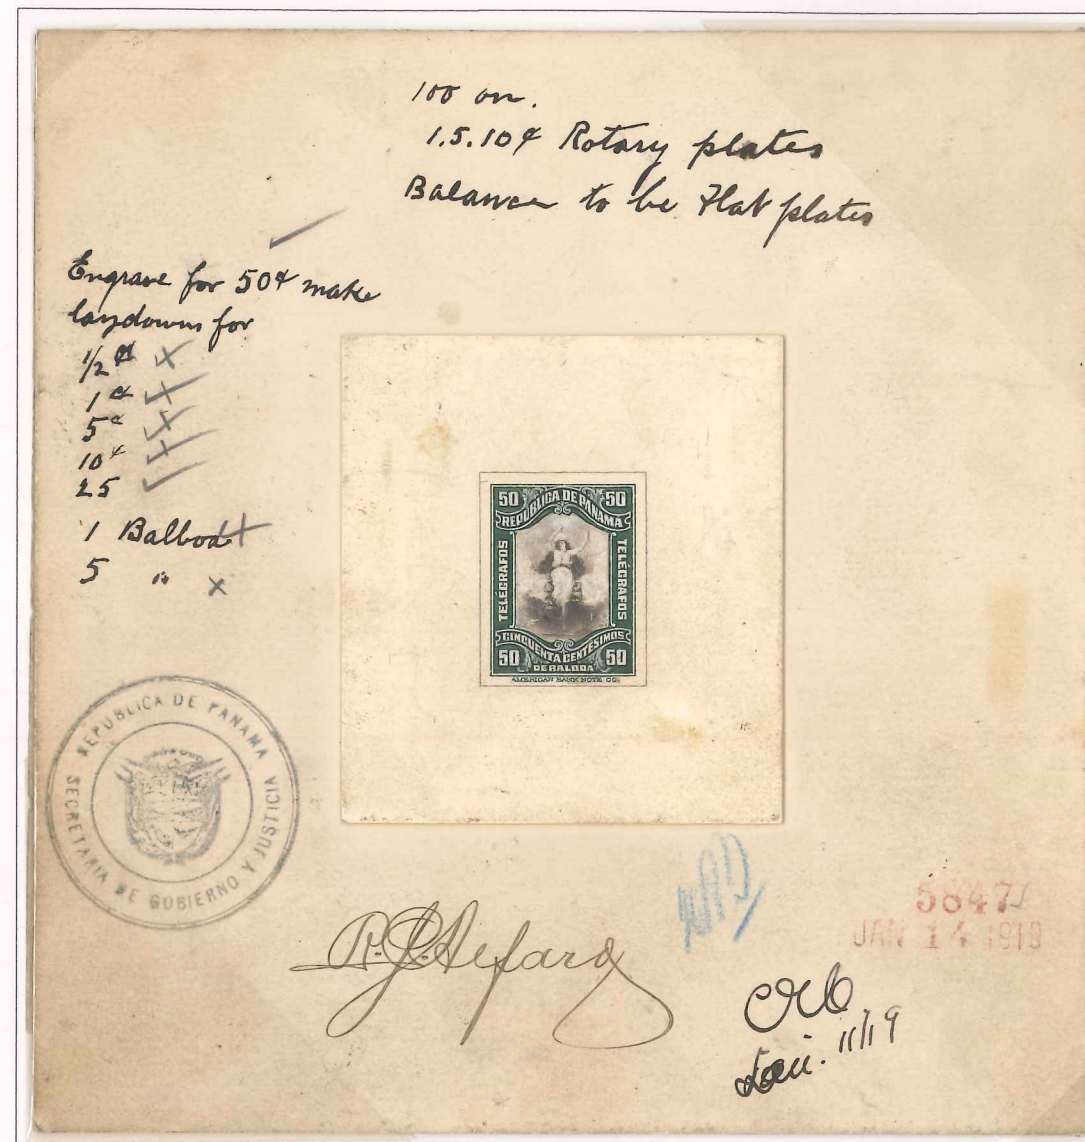 100 on.
1.5.10¢ Rotary plates
Balance to be Flat plates
Engrave for 50¢ make
laydowns for
1/2 ¢ x
1 ¢ x
5 ¢ x
10 ¢ x
25 ✓
1 Balboa x
5 " x
50 50
REPUBLICA DE PANAMA
TELEGRAFOS TELEGRAFOS
CINCUENTA CENTESIMOS
50 50
DE BALBOA
AMERICAN BANK NOTE CO.
REPUBLICA DE PANAMA
SECRETARIA DE GOBIERNO Y JUSTICIA
5847
JAN 14 1919
Jan. 11/19